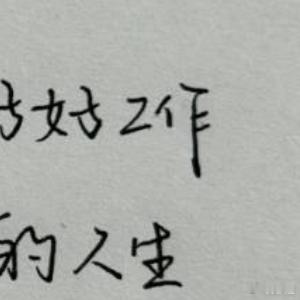 好好工作
的人生